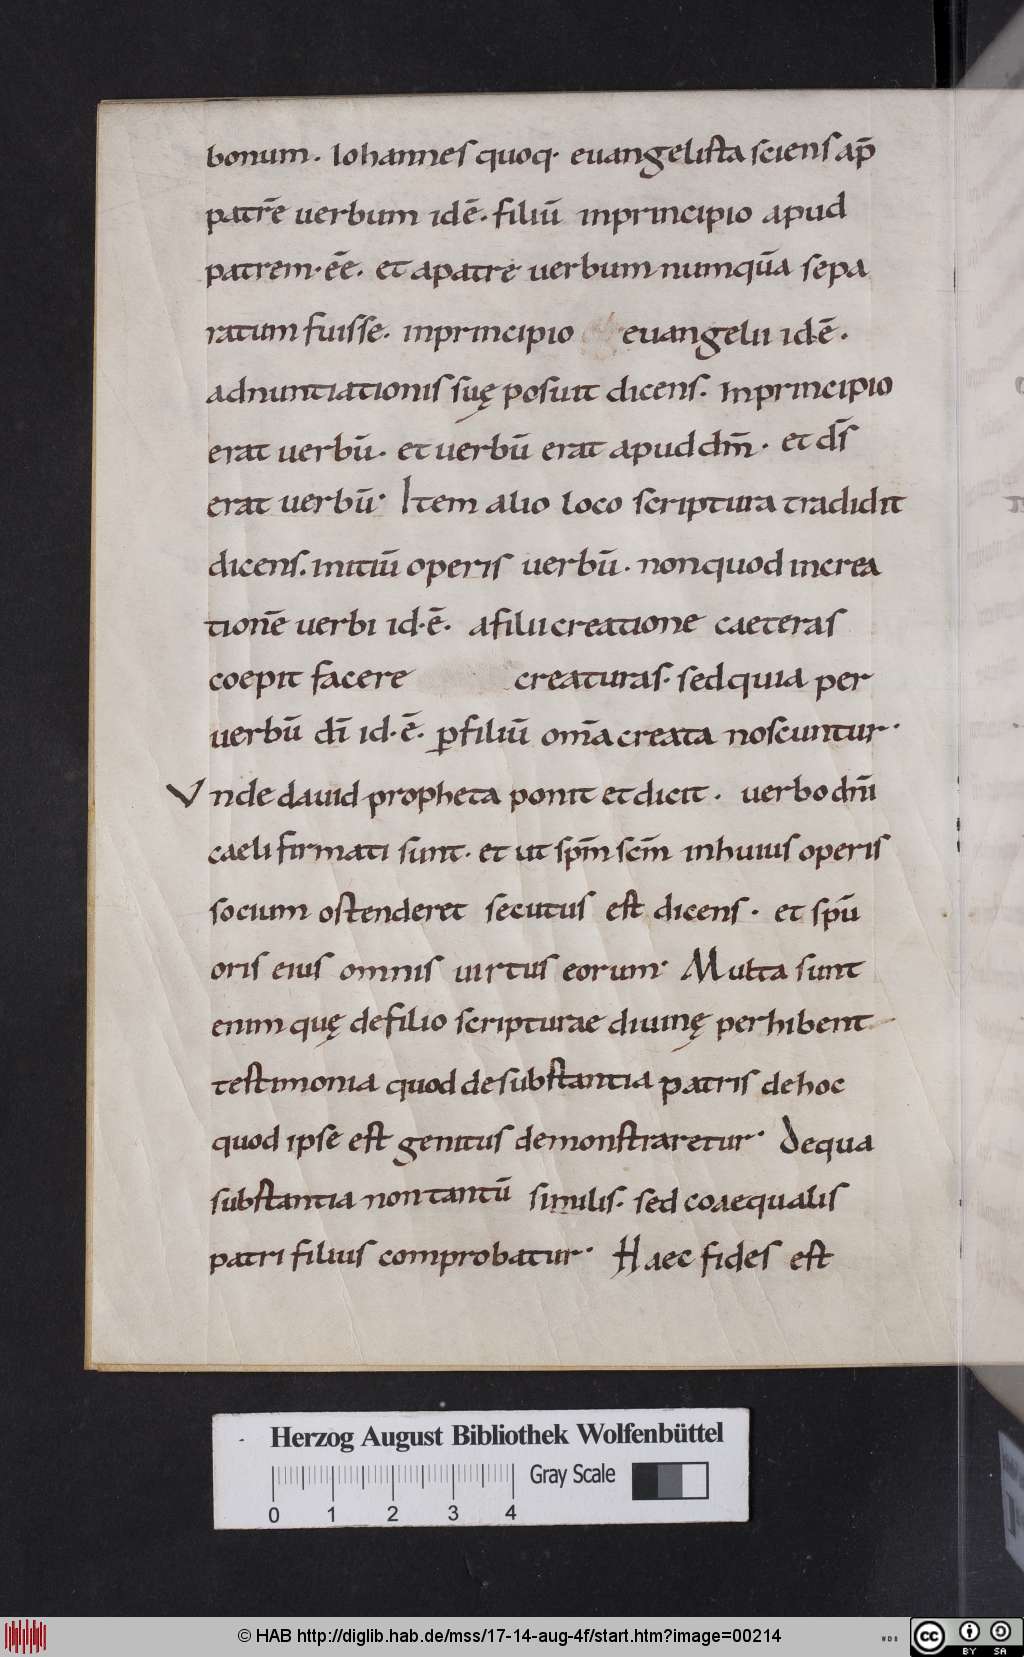 bonum. Iohannes quoq· euangelista sciens ap̄
patrē uerbum idē. filiū inprincipio apud
patrem·eē. et apatre uerbum numquā sepa
ratum fuisse. inprincipio euangelii idē.
adnuntiationis suę posuit dicens. Inprincipio
erat uerbū. et uerbū erat apud dm̄. et ds̄
erat uerbū· Item alio loco scriptura tradidit
dicens. initiū operis uerbū. nonquod increa
tionē uerbi id·ē. afilii creatione caeteras
coepit facere creaturas. sed quia per
uerbū dī id·ē. ꝑfiliū om̄a creata noscuntur·
Vnde dauid propheta ponit et dicit. uerbo dn̄i
caeli firmati sunt. et ut spm̄ scm̄ inhuius operis
socium ostenderet secutus est dicens. et spū
oris eius omnis uirtus eorum· Multa sunt
enim quę defilio scripturae diuinę perhibent
testimonia quod desubstantia patris dehoc
quod ipse est genitus demonstraretur· Dequa
substantia nontantū similis. sed coaequalis
patri filius comprobatur· Haec fides est
Herzog August Bibliothek Wolfenbüttel
Gray Scale
0 1 2 3 4
© HAB http://diglib.hab.de/mss/17-14-aug-4f/start.htm?image=00214
WDB
cc BY SA